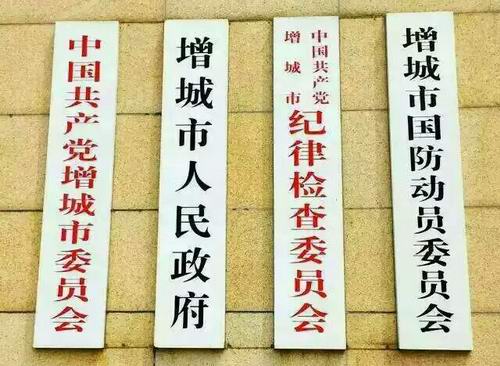 中国共产党增城市委员会
增城市人民政府
中国共产党
增城市
纪律检查委员会
增城市国防动员委员会